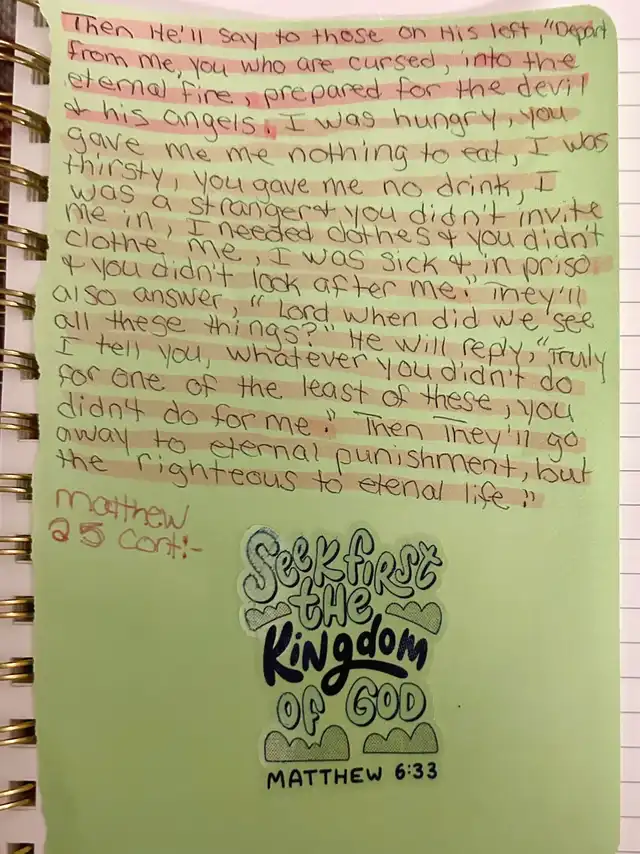 Then He'll say to those on His left, "Depart
from me, you who are cursed, into the
eternal fire, prepared for the devil
& his angels. I was hungry, you
gave me me nothing to eat, I was
thirsty, you gave me no drink, I
was a stranger & you didn't invite
me in, I needed clothes & you didn't
clothe me, I was sick & in priso
& you didn't look after me." They'll
also answer, "Lord when did we see
all these things?" He will reply, "Truly
I tell you, whatever you didn't do
for one of the least of these, you
didn't do for me." Then They'll go
away to eternal punishment, but
the righteous to etenal life."
Matthew
25 Cont:-
Seek first
the
Kingdom
of God
MATTHEW 6:33